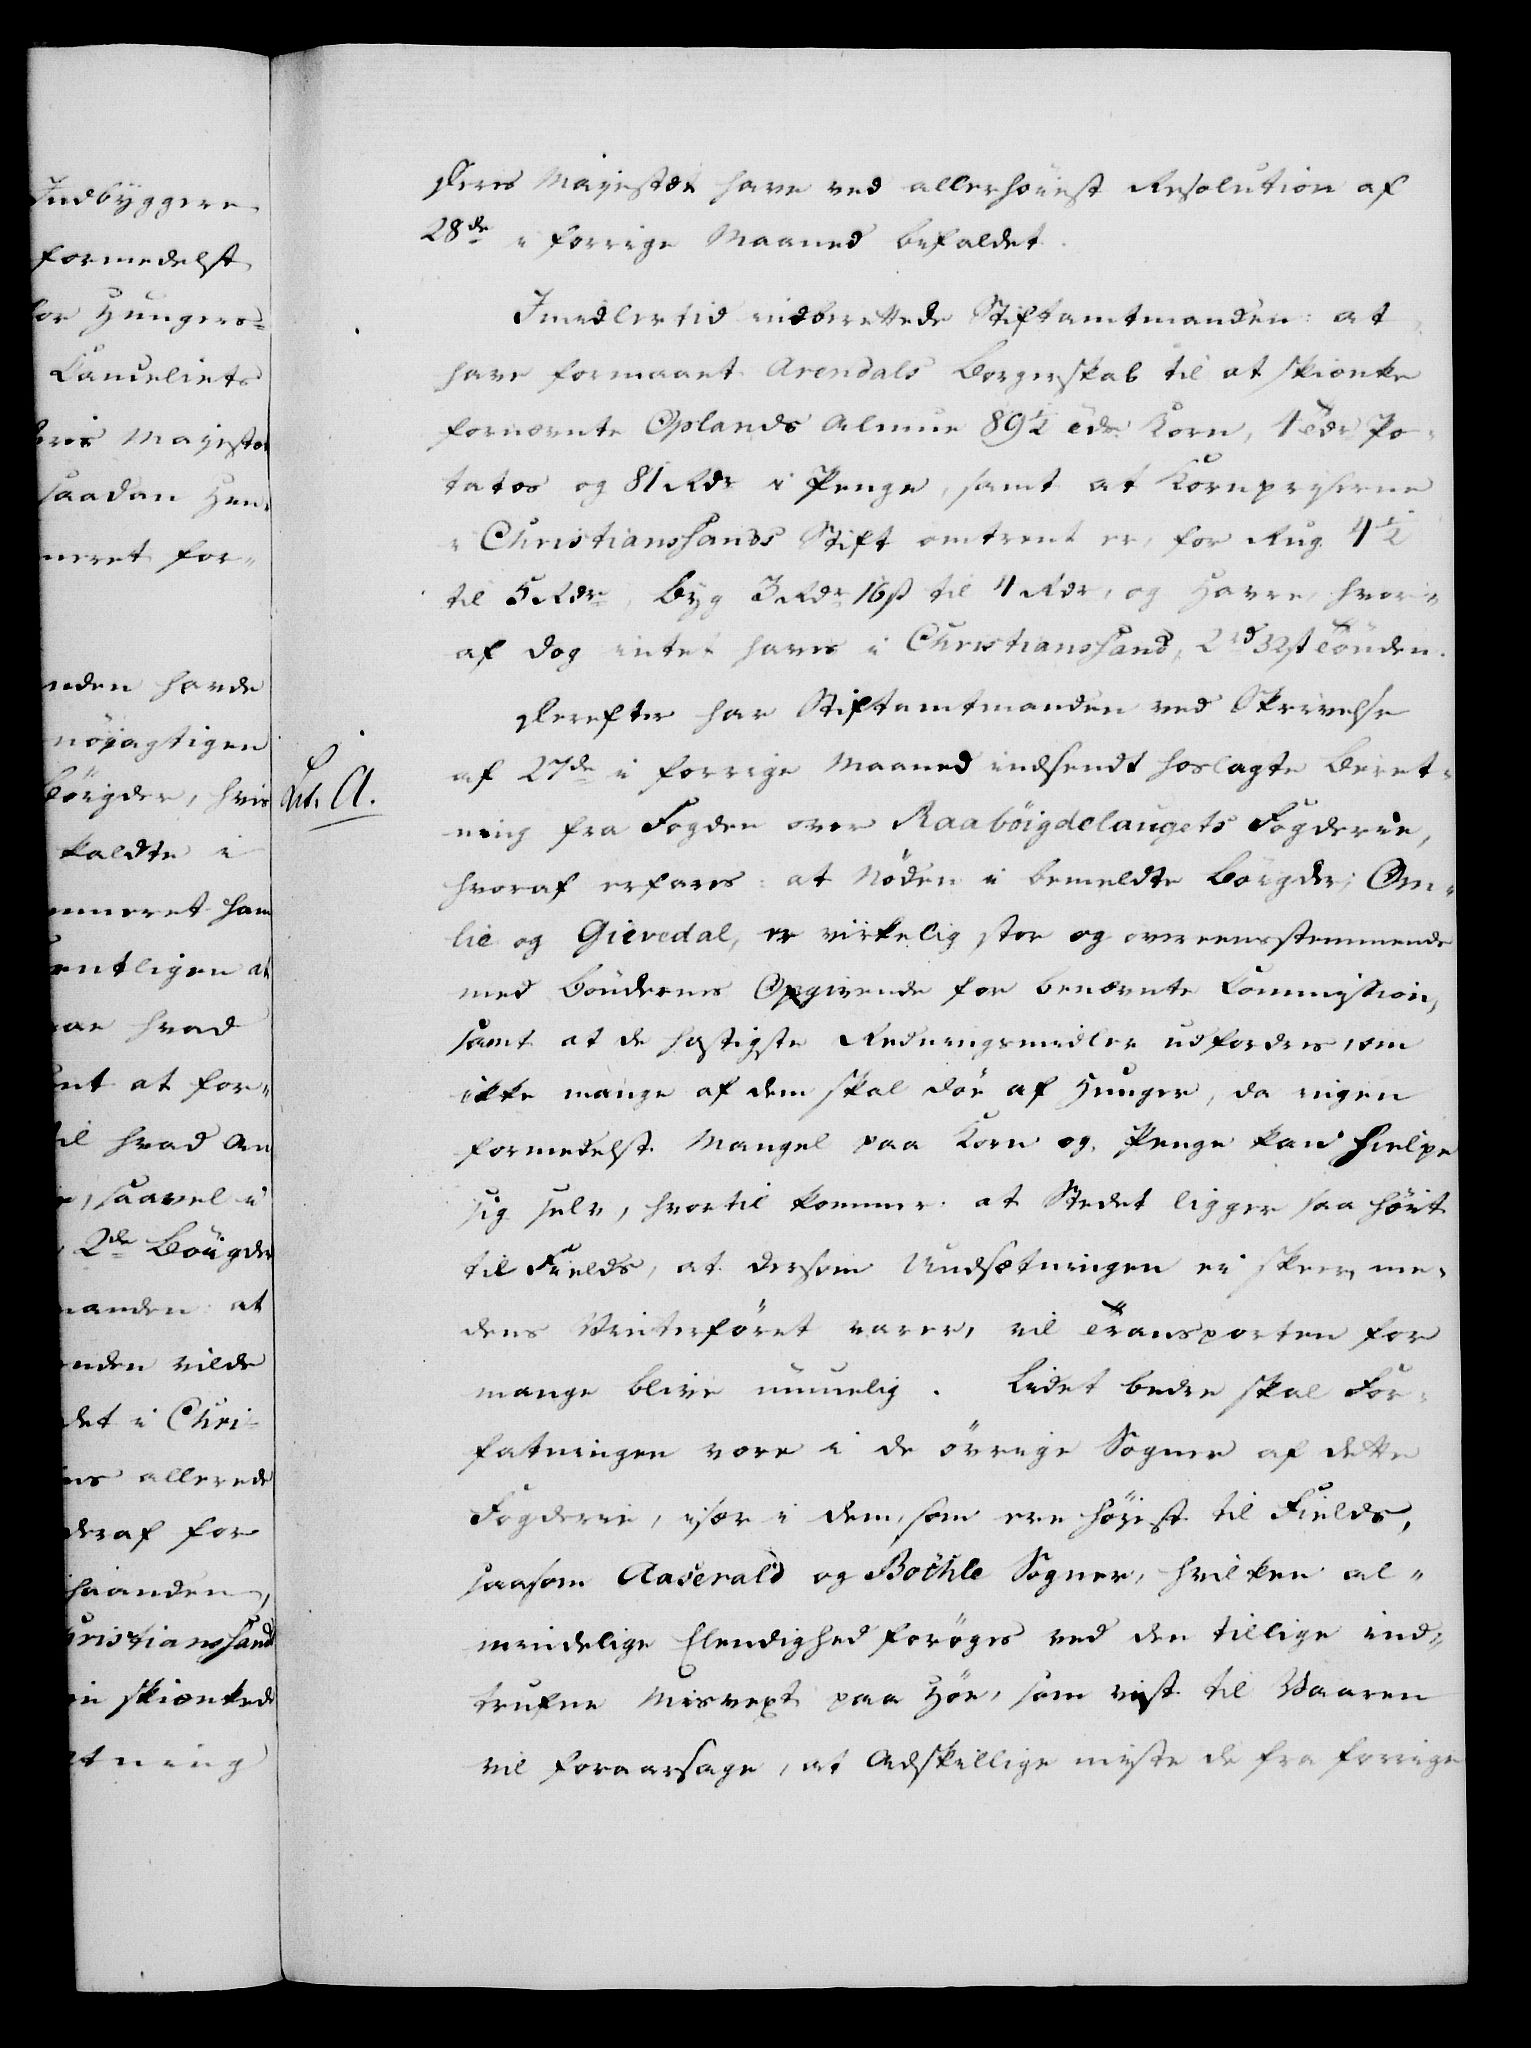 Indbyggere
formedelst
for Hungers-
Cancelliets
Deris Majestæt
saadan Hen-
neret for-
nden havde
nöiagtigen
Böigder, hvis
kaldte i
nneret ham
entligen at
hvad
nt at for-
til hvad An
, saavel i
2de Böigder
manden at
nden vilde
det i Chri-
ns allerede
deraf for
haanden,
hristianssand
in skiænkede
tning
Deres Majestæt have ved allerhöiest Resolution af
28de i forrige Maaned befaldet.
Imidlertid indberettede Stiftamtmanden: at
have formaaet Arendals Borgerskab til at skiænke
fornævnte Oplands Almue 89½ Tdr Korn, 1 Tdr Po-
tatos og 81 Rdr i Penge, samt at Kornpriserne
i Christianssands Stift omtrent er, for Rug 4½
til 5 Rdr, Byg 3 Rdr 16 ß til 4 Rdr, og Havre, hvor-
af dog intet haves i Christianssand, 2 rd 32 ß Tönden.
Derefter har Stiftamtmanden ved Skrivelse
Lit. A.
af 27de i forrige Maaned indsendt hoslagte Beret-
ning fra Fogden over Raaböigdelaugets Fogderie,
hvoraf erfares: at Nöden i bemeldte Böigder, Om-
lie og Gievedal, er virkelig stor og overeensstemmende
med Böndernes Opgivende for benævnte Commission,
samt at de hastigste Redningsmidler udfordres, om
ikke mange af dem skal döe af Hunger, da ingen
formedelst Mangel paa Korn og Penge kan hielpe
sig selv, hvortil kommer at Stedet ligger saa höit
til Fields, at dersom Undsætningen ei skeer, me-
dens Vinterföret varer, vil Transporten for
mange blive umuelig. Lidet bedre skal For-
fatningen være i de övrige Sogner af dette
Fogderie, især i dem, som ere höiest til Fields,
saasom Aaserald og Böchle Sogner, hvilken al-
mindelige Elendighed foröges ved den tillige ind-
trufne Misvext paa Höe, som vist til Vaaren
vil foraarsage, at Adskillige miste de fra forrige